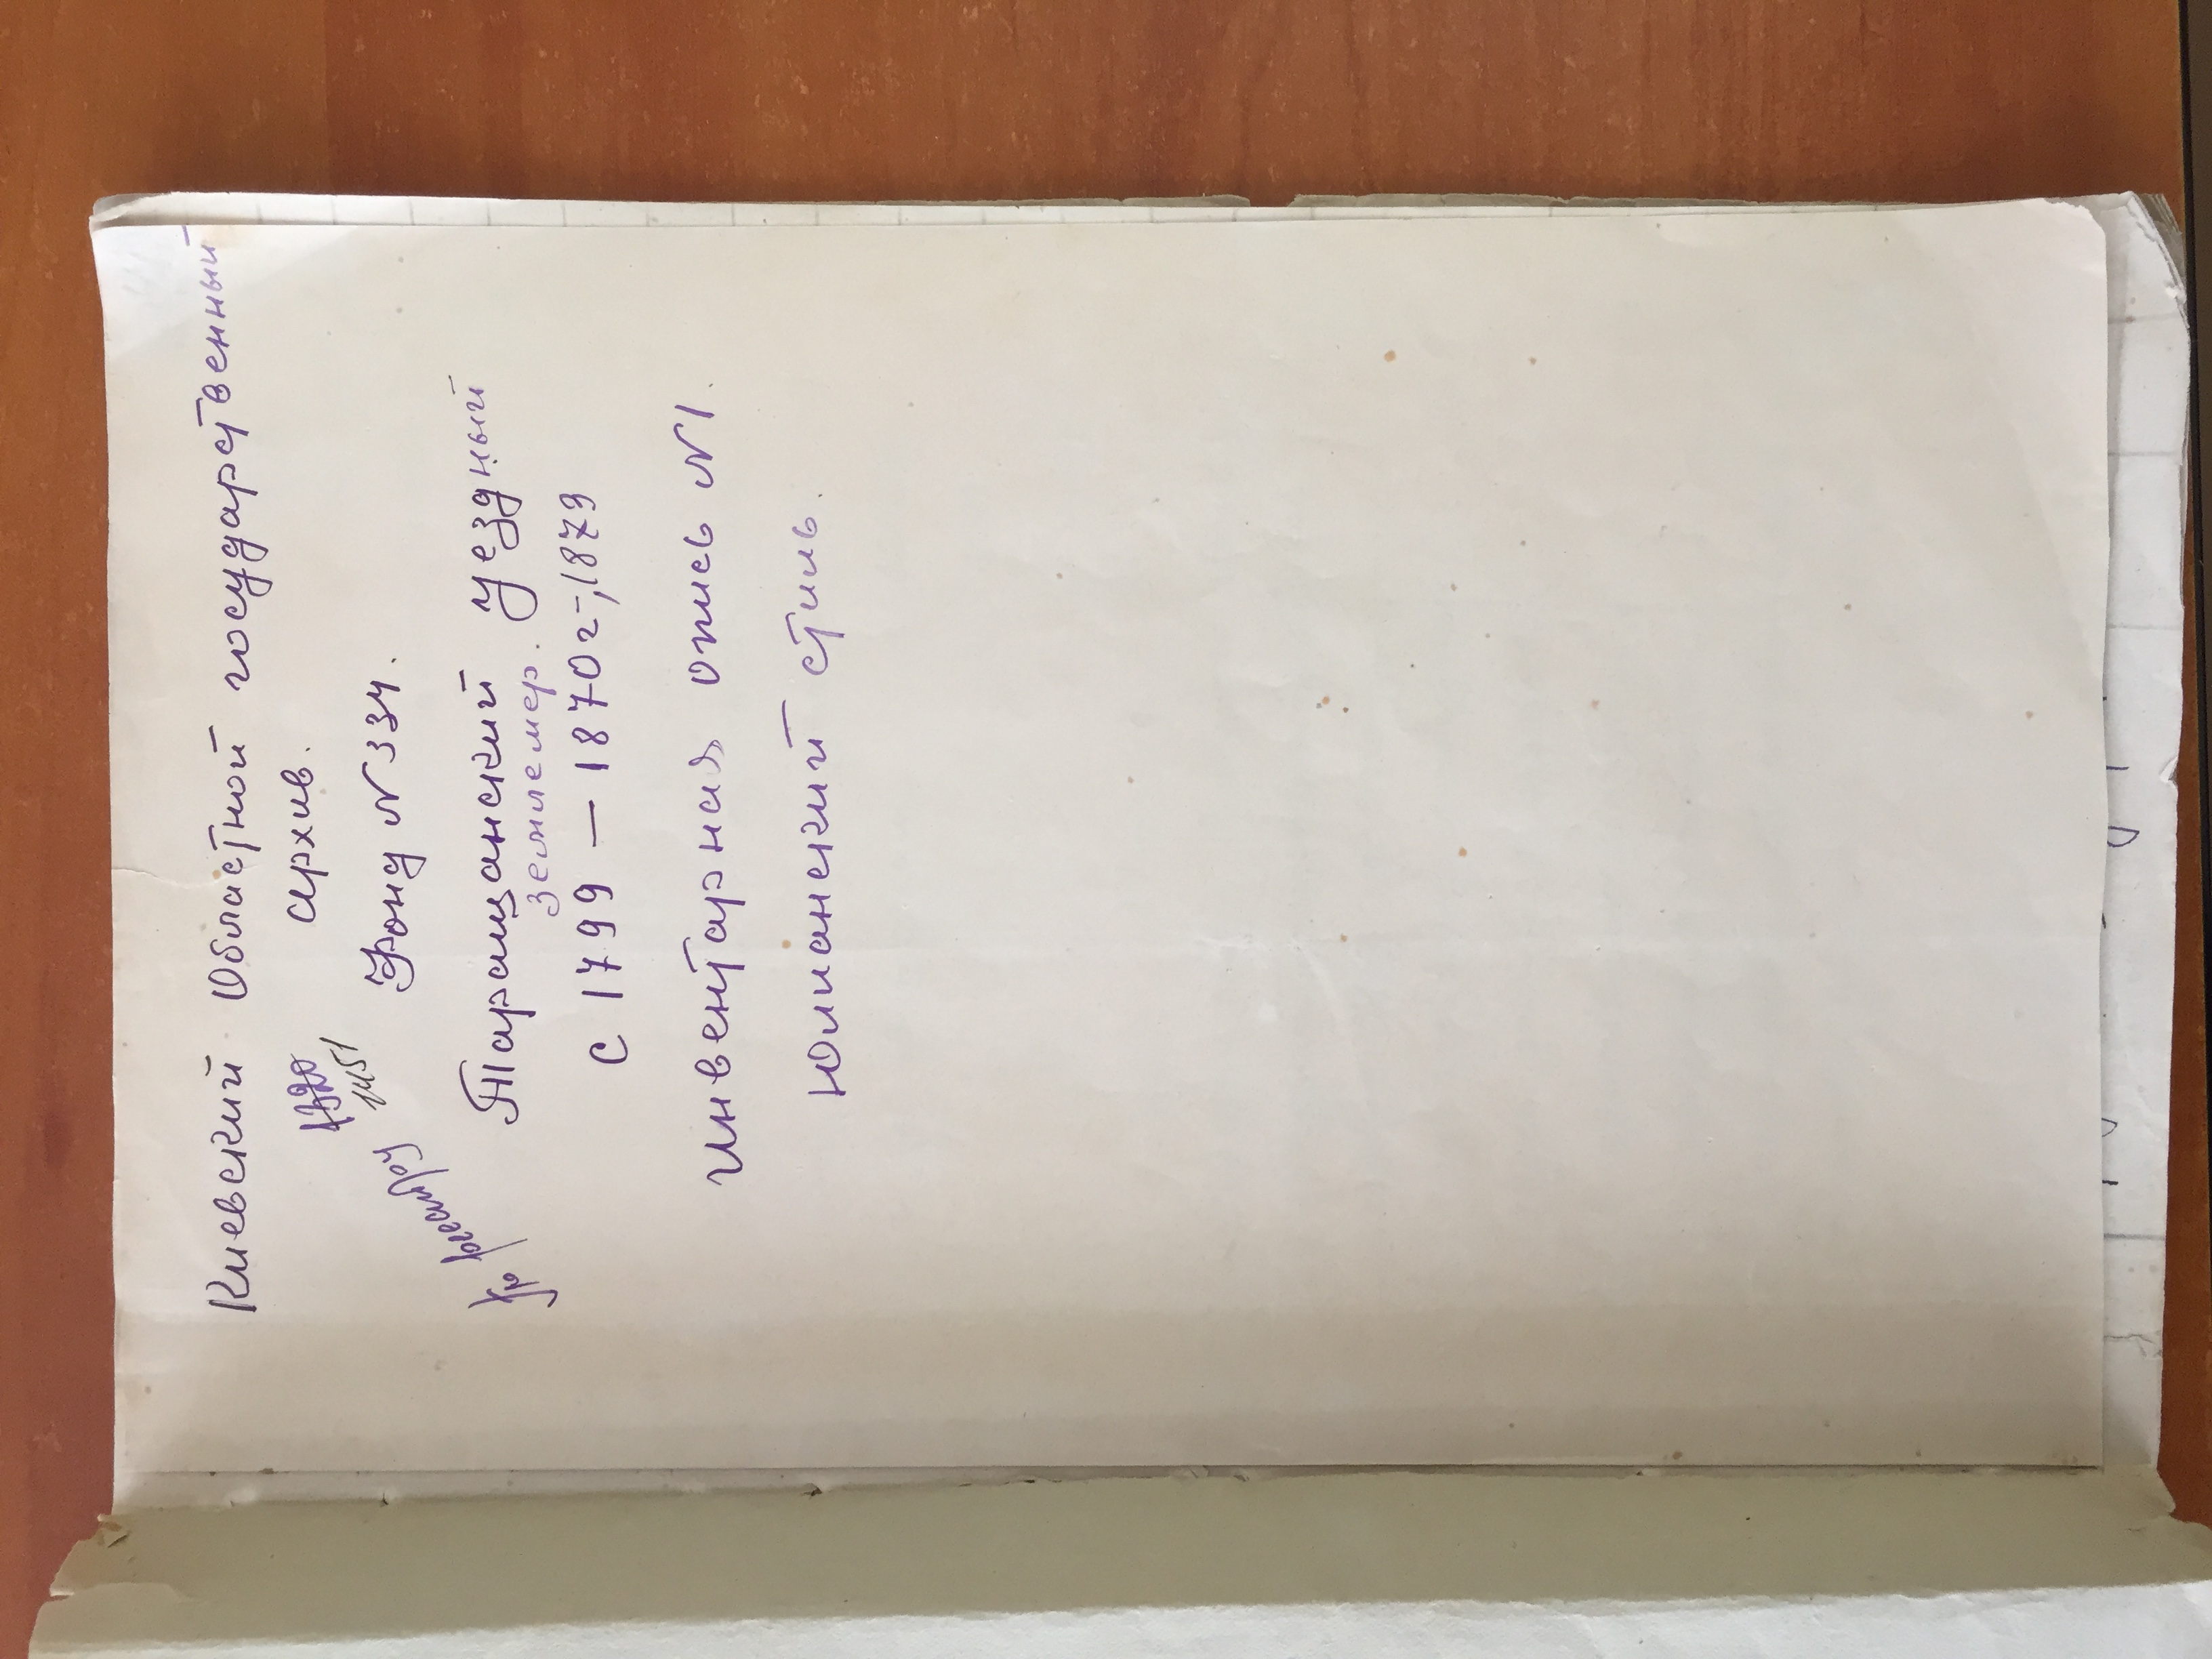 Киевский Областной государственный
архив.
1451
Фонд № 334.
Таращанский уездный
землемер.
с 1799 — 1870 г-, 1879
инвентарная опись № 1.
Юлианский стиль.